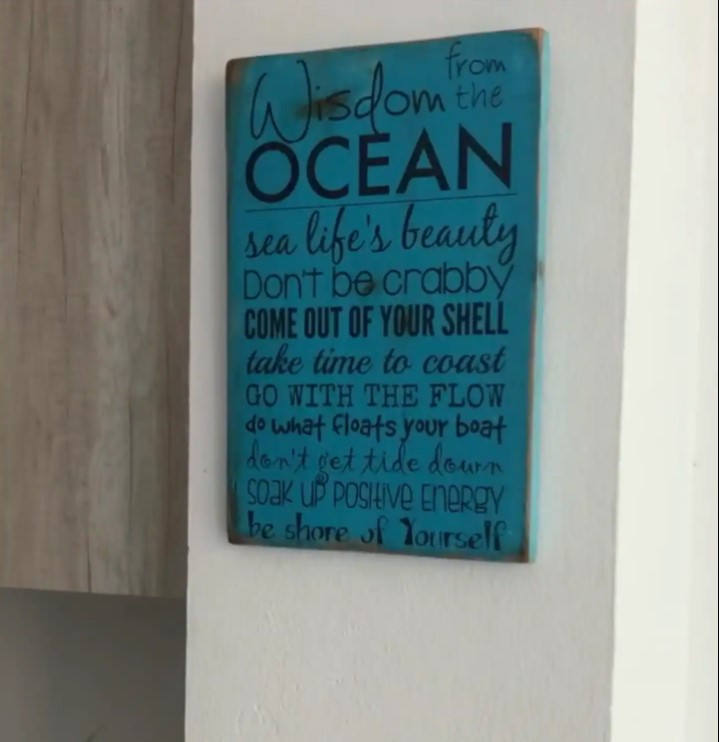 Wisdom from the
OCEAN
sea life's beauty
Don't be crabby
COME OUT OF YOUR SHELL
take time to coast
GO WITH THE FLOW
do what floats your boat
don't get tide down
SOAK UP POSITIVE ENERGY
be shore of Yourself